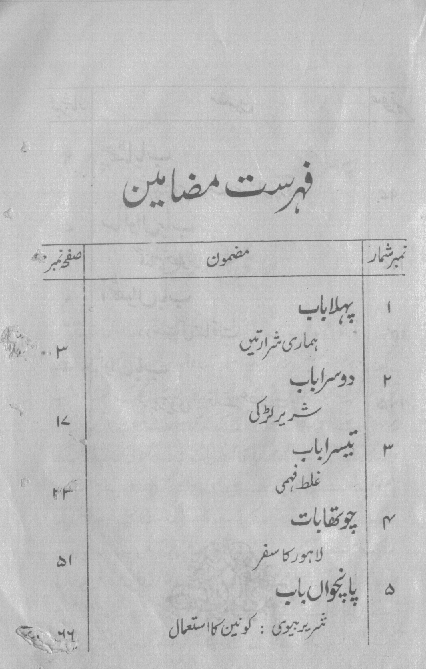 فہرست مضامین
نمبر شمار مضمون صفحہ نمبر
۱ پہلا باب
ہماری شرارتیں ۳
۲ دوسرا باب
شریر لڑکی ۱۷
۳ تیسرا باب
غلط فہمی ۲۳
۴ چوتھا بات
لاہور کا سفر ۵۱
۵ پانچواں باب
: کونین کا استعمال ۶۶